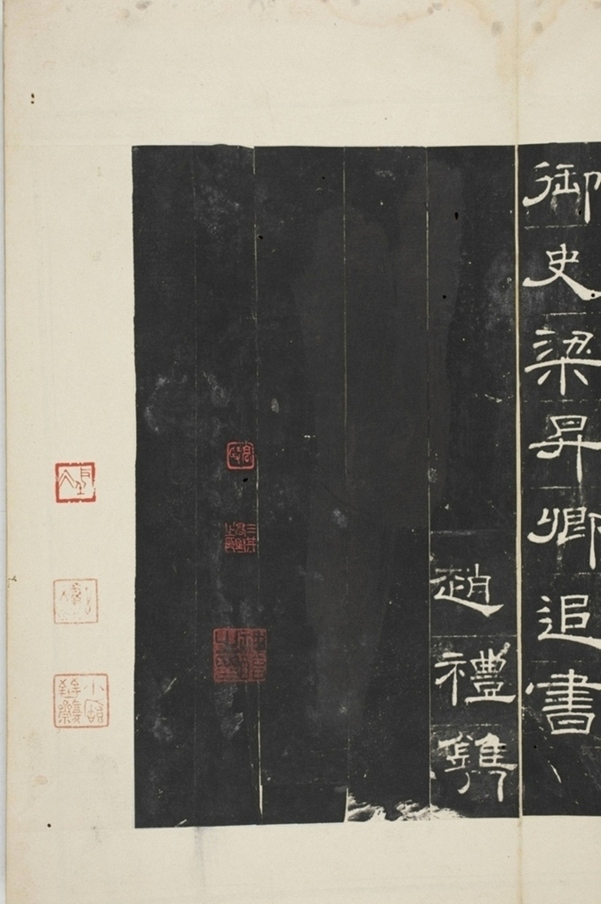 御史梁昇卿追書
趙禮鐫